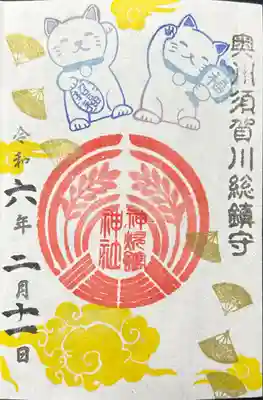 奥州須賀川総鎮守
神炊館
神社
令和六年二月十一日